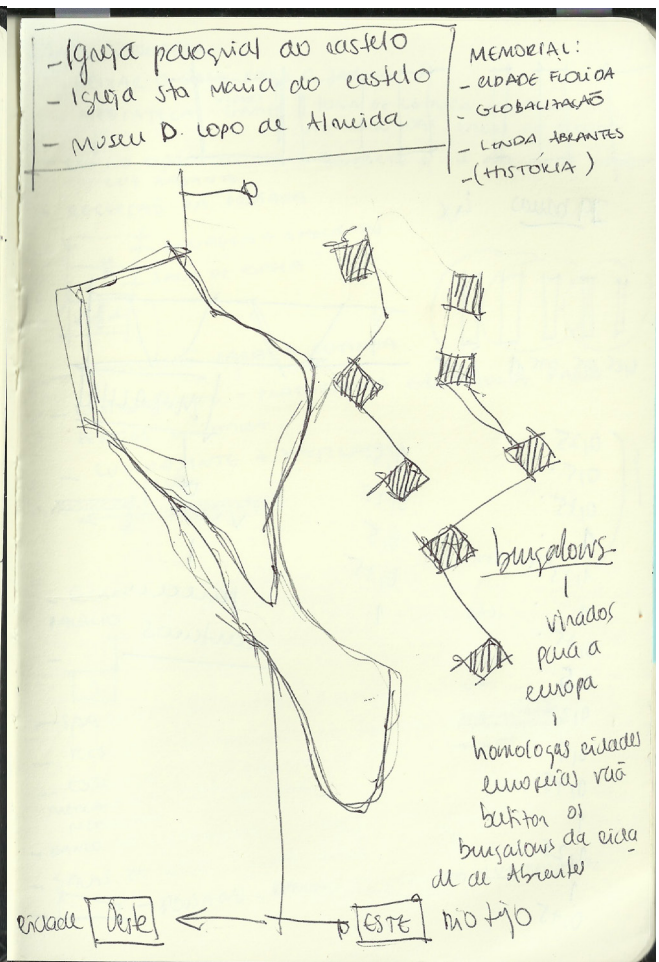 - Igreja paroquial do castelo
- Igreja sta Maria do castelo
- Museu D. Lopo de Almeida
MEMORIAL:
- CIDADE FLORIDA
- GLOBALIZAÇÃO
- LENDA ABRANTES
- (HISTÓRIA)
bungalows
virados
para a
europa
homologas cidades
europeias vão
batizar os
bungalows da cida
de de Abrantes
cidade Oeste
ESTE rio tejo